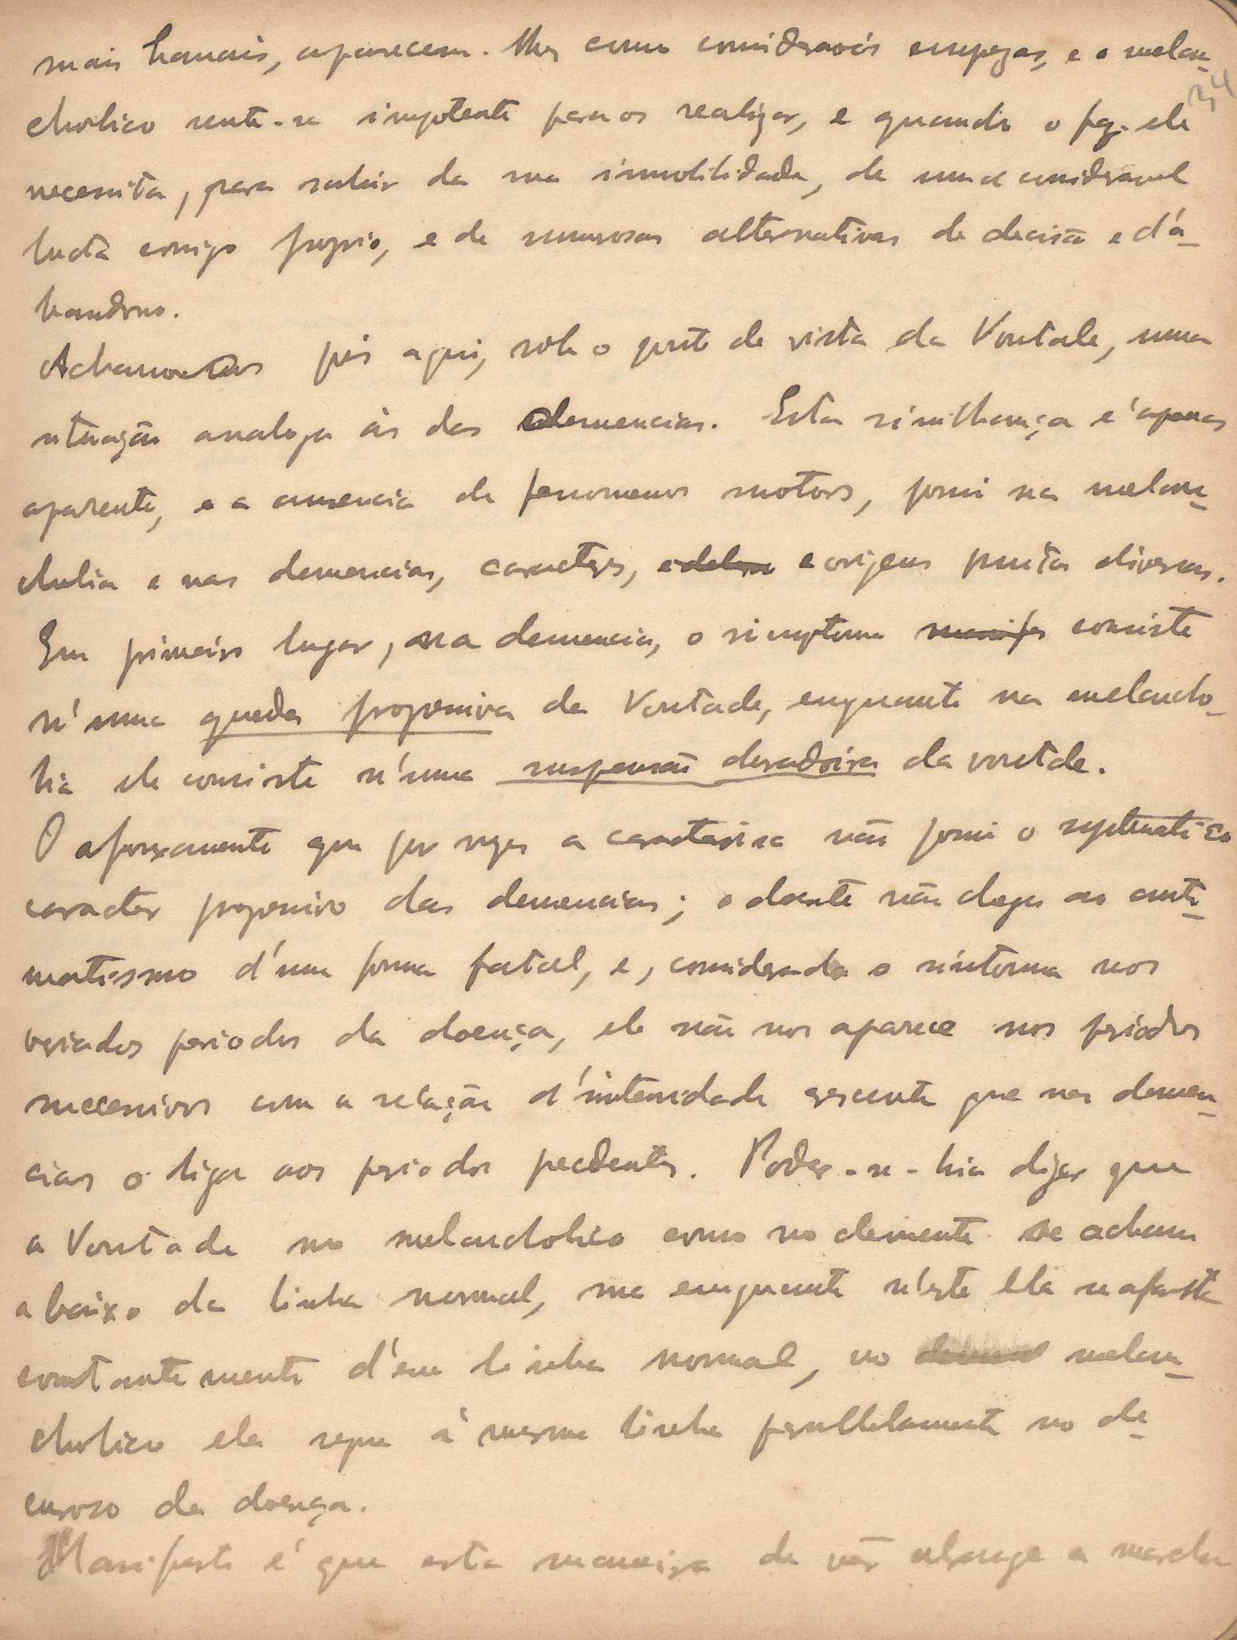 mais banais, aparecem-lhe como consideraveis emprezas, e o melan-
cholico sente-se impotente para os realizar, e quando o faz. ele
34
necessita, para sahir da sua immobilidade, de uma consideravel
lucta comsigo proprio, e de numerosas alternativas de decisão e d'a-
bandono.
Achamo-nos pois aqui, sob o ponto de vista da Vontade, n'uma
situação analoga ás das demencias. Esta similhança é apenas
aparente, e a ausencia de fenomenos motores, possui na melan-
cholia e nas demencias, caracteres, e origens muito diversas.
Em primeiro lugar, na demencia, o simptoma consiste
n'uma queda progressiva da Vontade, emquanto na melancho-
lia ele consiste n'uma suspensão duradoira da vontade.
O afrouxamento que por vezes a caracteriza não possui o systematico
caracter progressivo das demencias; o doente não chega ao auto-
matismo d'uma forma fatal, e, considerado o sintoma nos
variados periodos da doença, ele não nos aparece nos periodos
successivos com a relação d'intensidade crescente que nas demen-
cias o liga aos periodos precedentes. Poder-se-hia dizer que
a Vontade no melancholico como no demente se acham
abaixo da linha normal, mas emquanto n'este ela se afasta
constantemente d'essa linha normal, no melan-
cholico ela segue a mesma linha parallelamente no de-
curso da doença.
Manifesto é que esta maneira de vêr abrange a marcha